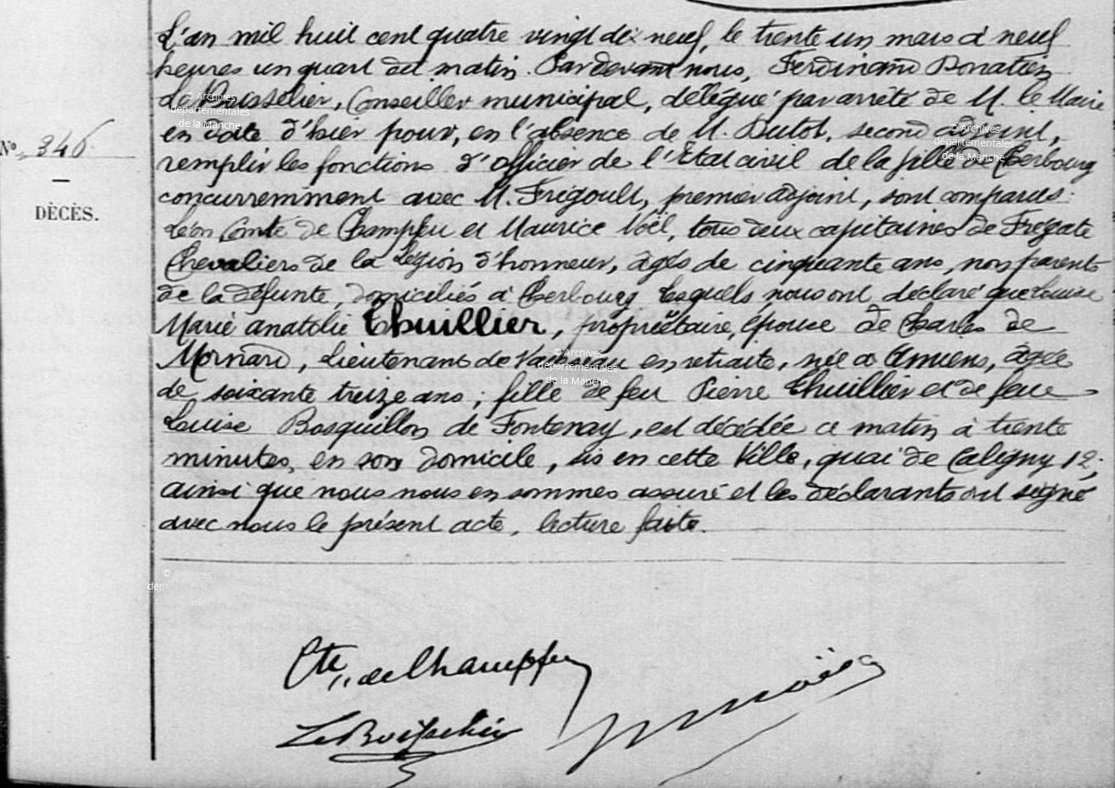 L'an mil huit cent quatre vingt dix neuf, le trente un mars à neuf
heures un quart du matin. Par devant nous, Ferdinand Donatien
Le Buisselier, Conseiller municipal, délégué par arrêté de M. le Maire
en date d'hier pour, en l'absence de M. Dutot, second adjoint,
Nº 346
remplir les fonctions d'officier de l'Etat civil de la ville de Cherbourg
concurremment avec M. Frigoult, premier adjoint, sont comparus:
DÉCÈS.
Léon Comte de Champfeu et Maurice Noël, tous deux capitaines de Frégate
Chevaliers de la Légion d'honneur, âgés de cinquante ans, non parents
de la défunte, domiciliés à Cherbourg lesquels nous ont déclaré que Louise
Marie anatolie Thuillier, propriétaire, épouse de Charles de
Mornard, Lieutenant de Vaisseau en retraite, née à Amiens, âgée
de soixante treize ans; fille de feu Pierre Thuillier et de feue
Louise Bosquillon de Fontenay, est décédée ce matin à trente
minutes, en son domicile, sis en cette Ville, quai de Caligny 12;
ainsi que nous nous en sommes assuré et les déclarants ont signé
avec nous le présent acte, lecture faite.
Cte de Champfeu
MNoël
Le Buisselier
© Archives
départementales
de la Manche
© Archives
départementales
de la Manche
© Archives
départementales
de la Manche